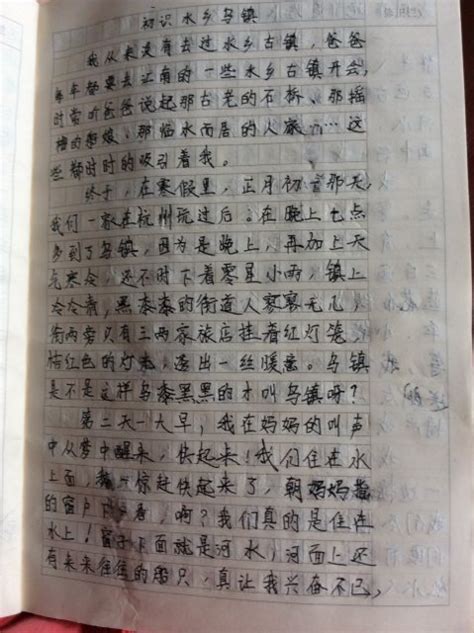 初识水乡乌镇
我从来没有去过水乡古镇，爸爸
每年都要去江南的一些水乡古镇开会，
时常听爸爸说起那古老的石桥、那摇
橹的船娘、那临水而居的人家……这
些都时时的吸引着我。
终于，在寒假里，正月初那天，
我们一家在杭州玩过后，在晚上七点
多到了乌镇，因为是晚上，再加上天
气寒冷，还不时下着零星小雨，镇上
冷冷清，黑漆漆的街道人寥寥无几，
街两旁只有三两家旅店挂着红灯笼，
桔红色的灯光，透出一丝暖意。乌镇
是不是这样乌漆黑黑的才叫乌镇呀？
第二天一大早，我在妈妈的叫声
中从梦中醒来，快起来！我们住在水
上面，我一惊赶快起来了，朝妈妈指
的窗户看，啊？我们真的是住在
水上！窗子下面就是河水，河面上还
有来来往往的船只，真让我兴奋不已，